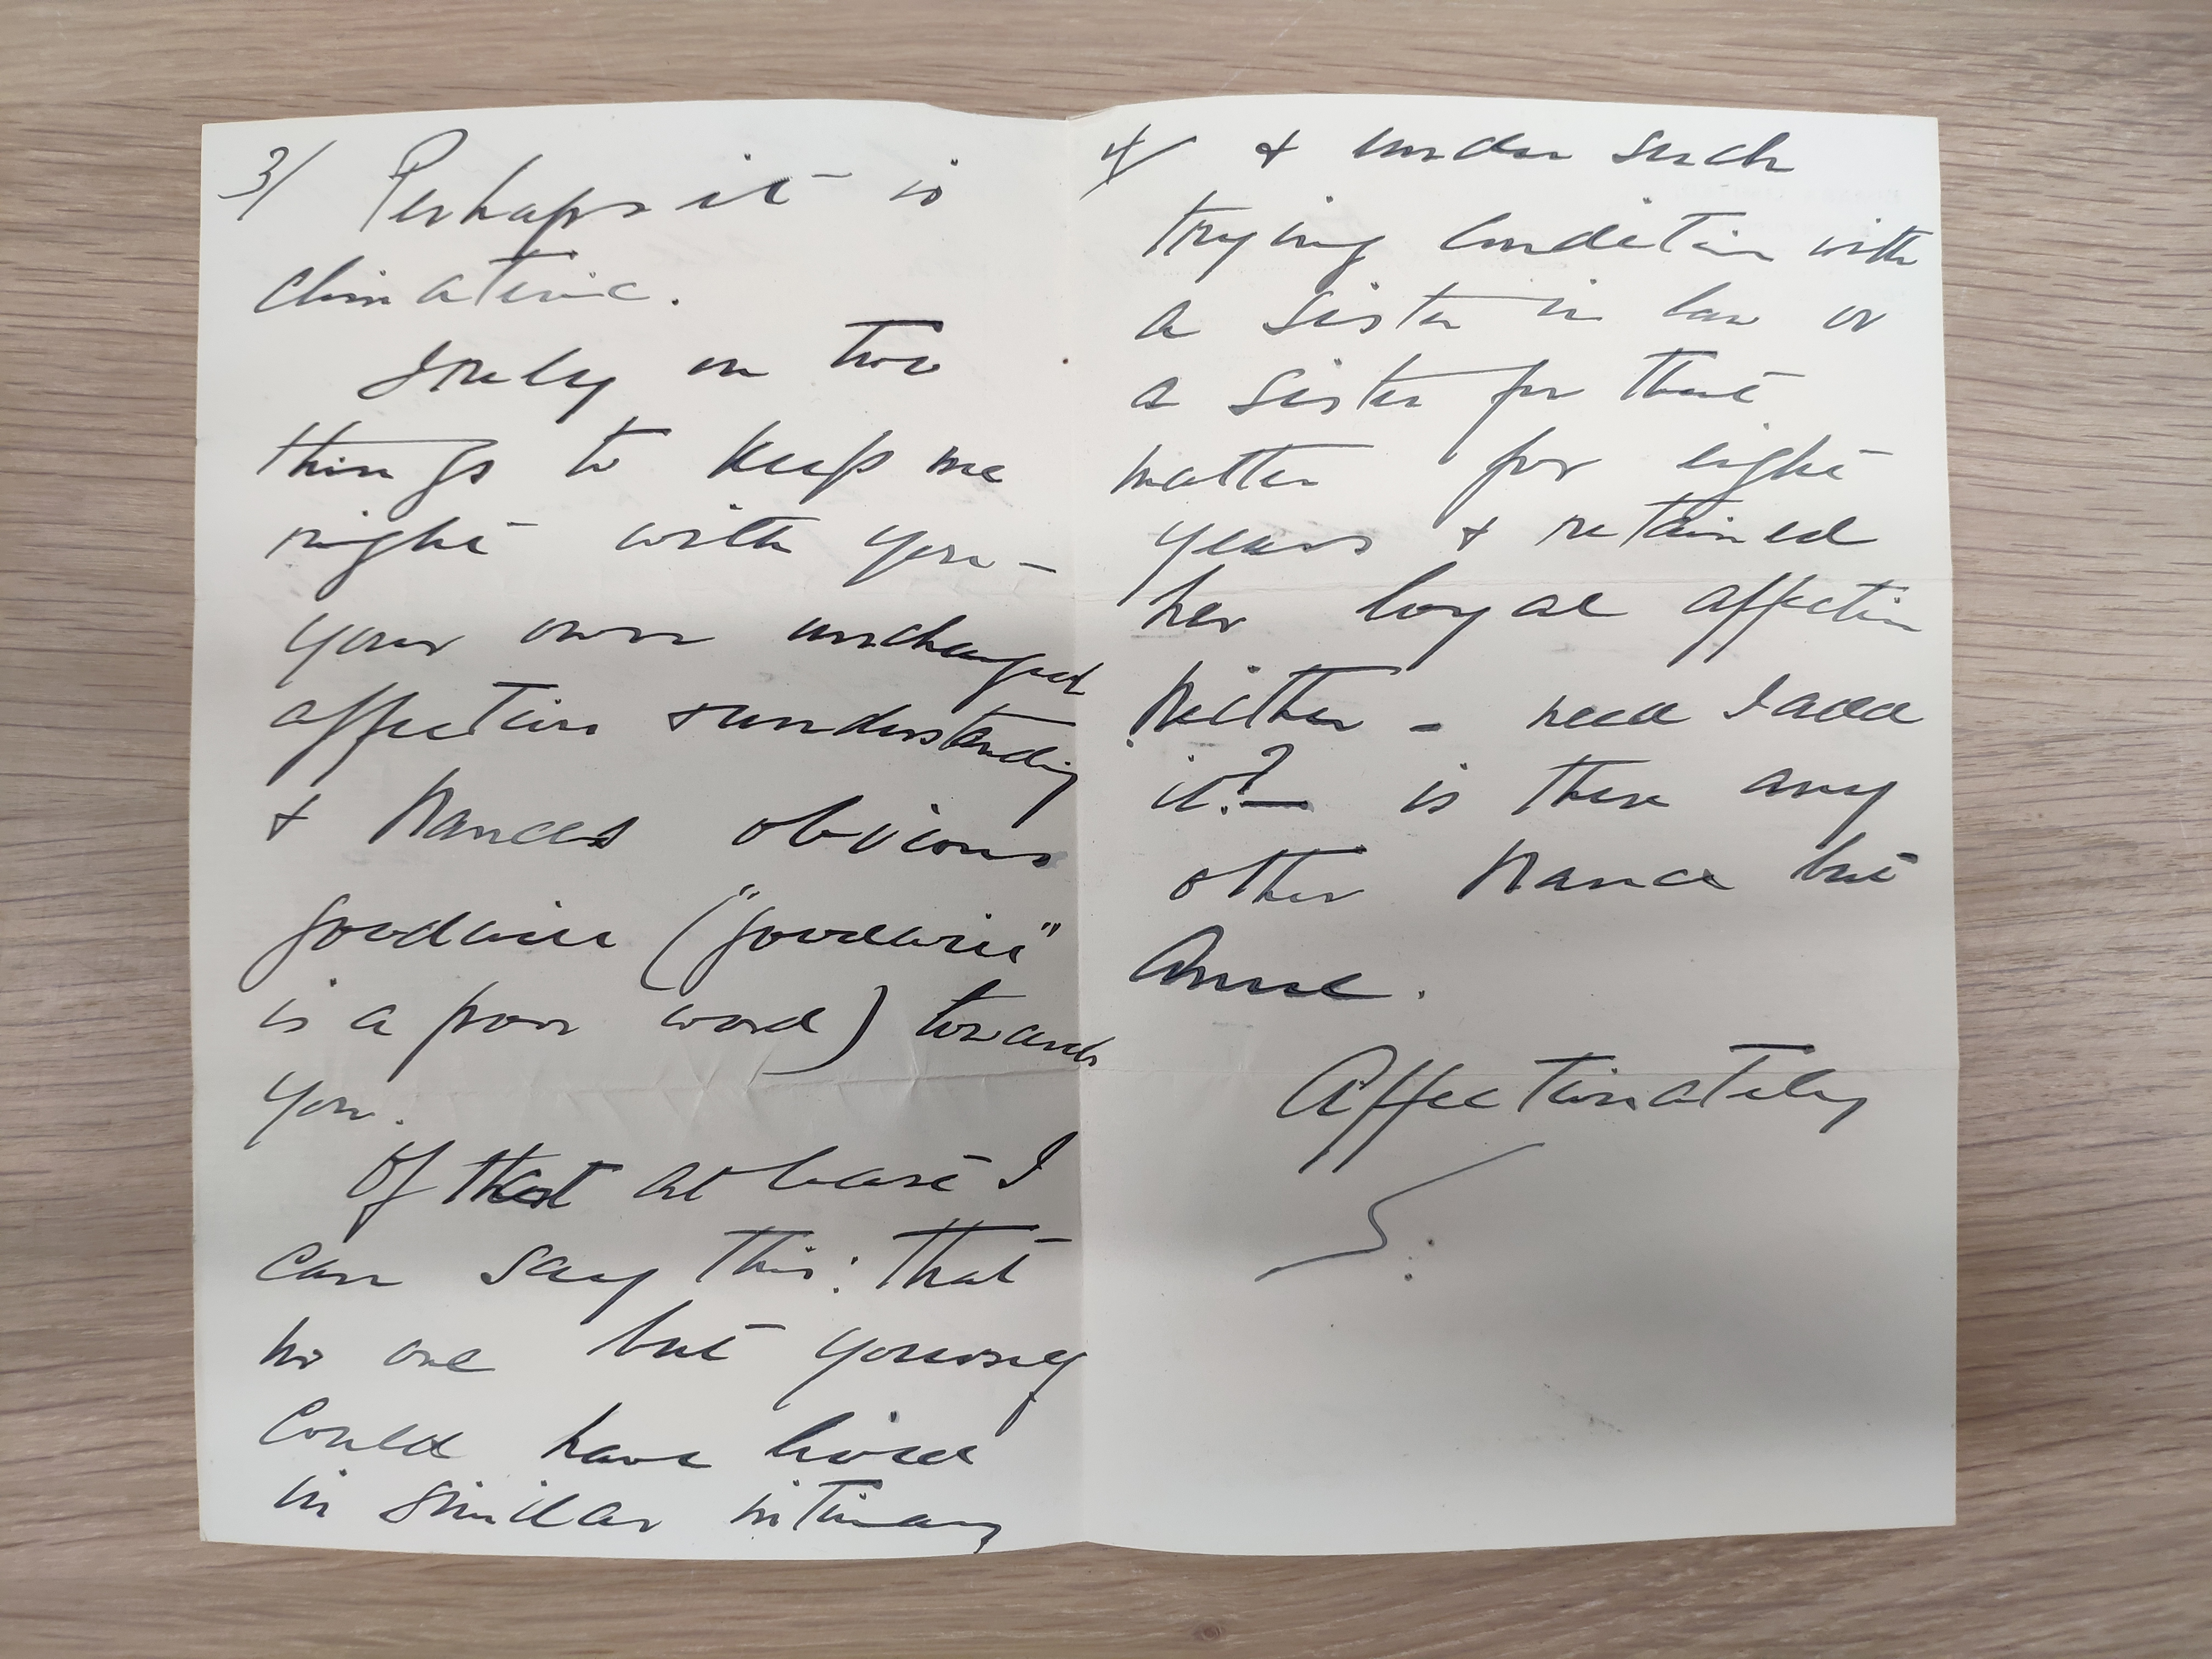 3/ Perhaps it is
climateric.
I rely on two
things to keep me
right with you –
your own unchanged
affection & understanding
& Nances obvious
goodwill ("goodwill"
is a poor word) towards
you.
Of that at least I
can say this: that
no one but yourself
could have lived
in similar intimacy
4/ & under such
trying condition with
a sister in law or
a sister for that
matter for eight
years & retained
her loyal affection
Neither – need I add
it? – is there any
other Nance but
Anne.
Affectionately
S.